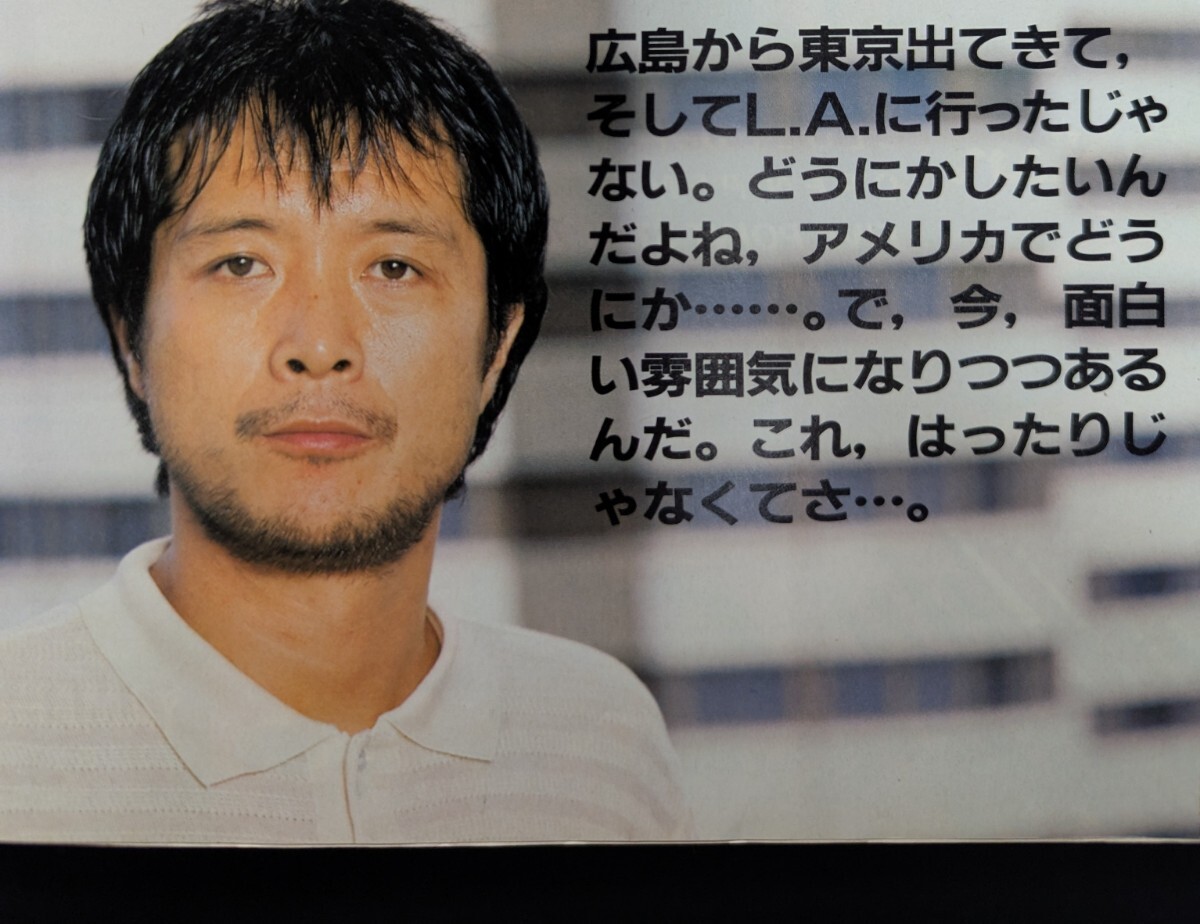 広島から東京出てきて，
そしてL.A.に行ったじゃ
ない。どうにかしたいん
だよね，アメリカでどう
にか……。で，今，面白
い雰囲気になりつつある
んだ。これ，はったりじ
ゃなくてさ…。